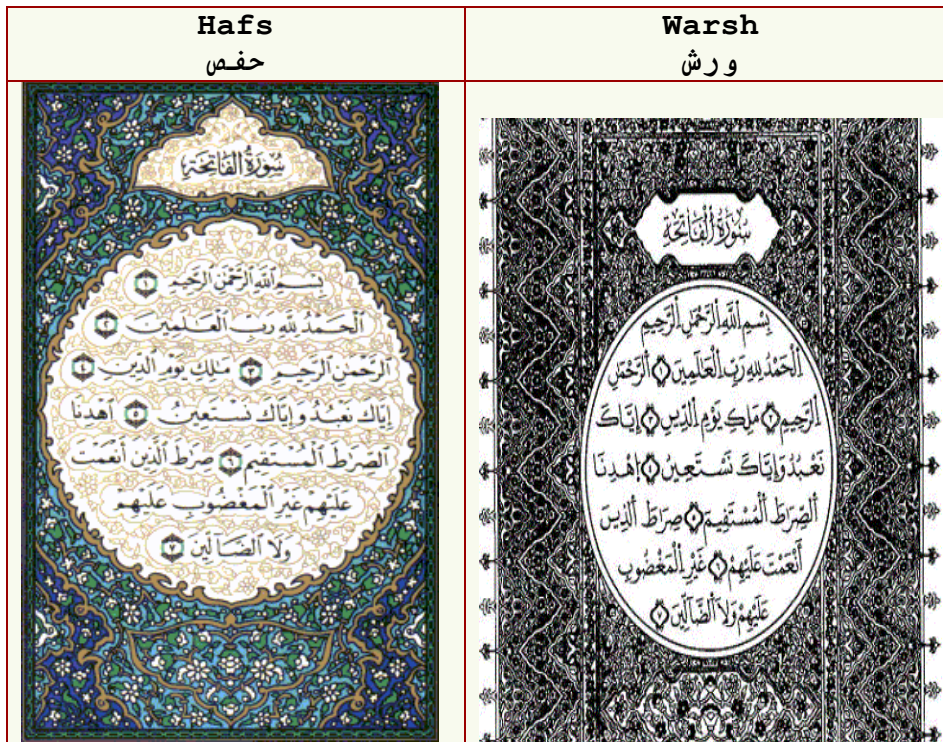 Hafs
حفص
Warsh
ورش
سُورَةُ الفَاتِحَةِ
بِسْمِ ٱللَّهِ ٱلرَّحْمَٰنِ ٱلرَّحِيمِ ١
ٱلْحَمْدُ لِلَّهِ رَبِّ ٱلْعَٰلَمِينَ ٢
ٱلرَّحْمَٰنِ ٱلرَّحِيمِ ٣ مَٰلِكِ يَوْمِ ٱلدِّينِ ٤
إِيَّاكَ نَعْبُدُ وَإِيَّاكَ نَسْتَعِينُ ٥ ٱهْدِنَا
ٱلصِّرَٰطَ ٱلْمُسْتَقِيمَ ٦ صِرَٰطَ ٱلَّذِينَ أَنْعَمْتَ
عَلَيْهِمْ غَيْرِ ٱلْمَغْضُوبِ عَلَيْهِمْ
وَلَا ٱلضَّآلِّينَ ٧
سُورَةُ الْفَاتِحَةِ
بِسْمِ اللَّهِ الرَّحْمَٰنِ الرَّحِيمِ
الْحَمْدُ لِلهِ رَبِّ الْعَالَمِينَ الرَّحْمَٰنِ
الرَّحِيمِ مَلِكِ يَوْمِ الدِّينِ إِيَّاكَ
نَعْبُدُ وَإِيَّاكَ نَسْتَعِينُ اِهْدِنَا
الصِّرَٰطَ الْمُسْتَفِيمَ صِرَٰطَ الذِينَ
أَنْعَمْتَ عَلَيْهِمْ غَيْرِ الْمَغْضُوبِ
عَلَيْهِمْ وَلَا الضَّآلِّينَ